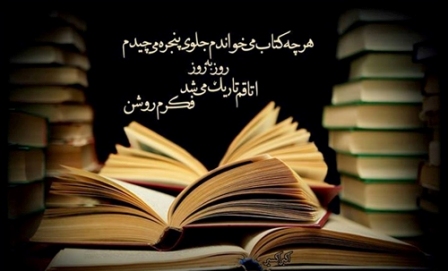 هر چه کتاب می‌خواندم جلوی پنجره می‌چیدم
روز به روز
اتاقم تاریک می‌شد
فکرم روشن